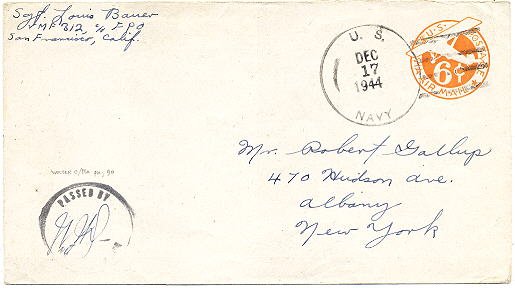 Sgt. Louis Bauer
VMF 312, c/o F.P.O
San Francisco, Calif.
U. S.
DEC
17
1944
NAVY
U.S. POSTAGE
6¢
VIA AIR MAIL
Mr. Robert Gallup
470 Hudson Ave.
Albany
New York
PASSED BY